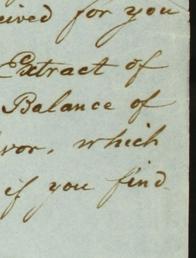 ceived for you
Extract of
Balance of
vor, which
if you find